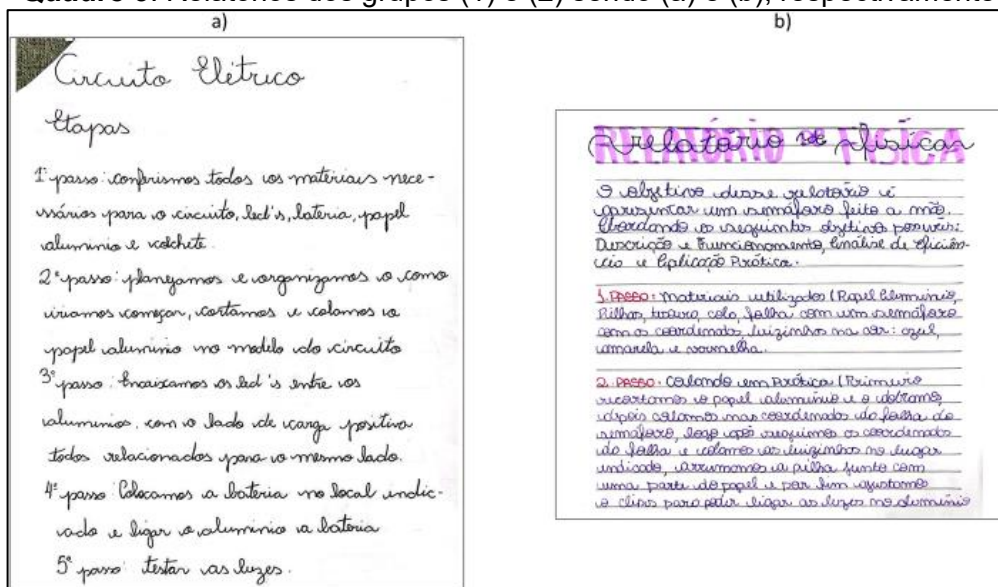 a)
Circuito Elétrico
Etapas
1º passo: conferismos todos os materiais nece-
ssários para o circuito, led's, bateria, papel
aluminio e colchete.
2º passo: planejamos e organizamos o como
iriamos começar, cortamos e colamos o
papel aluminio no modelo do circuito
3º passo: Encaixamos os led's entre os
aluminios, com o lado de carga positiva
todos relacionados para o mesmo lado.
4º passo Colocamos a bateria no local indic-
ado e ligar o aluminio a bateria
5º passo: testar as luzes.
b)
RELATÓRIO DE FISÍCA
relatório de fisica
O objetivo desse relatório é
apresentar um semáforo feito a mão.
Abordando os seguintes objetivos
Descrição e Funcionamento, Análise de eficiên-
cia e Aplicação Prática.
1. PASSO: Materiais utilizados (Papel Aluminio,
Pilhas, tesoura, cola, folha com um semáforo
com as coordenadas, luizinhas na cor: azul,
amarela e vermelha.
2. PASSO: Colando em Prática (Primeiro
recortamos o papel aluminio e o dobramos,
depois colamos nas coordenadas da folha do
semáforo, logo após seguimos as coordenadas
da folha e colamos as luizinhas no lugar
indicado, arrumamos a pilha junto com
uma parte do papel e por fim ajustamos
o clips para poder ligar as luzes no aluminio